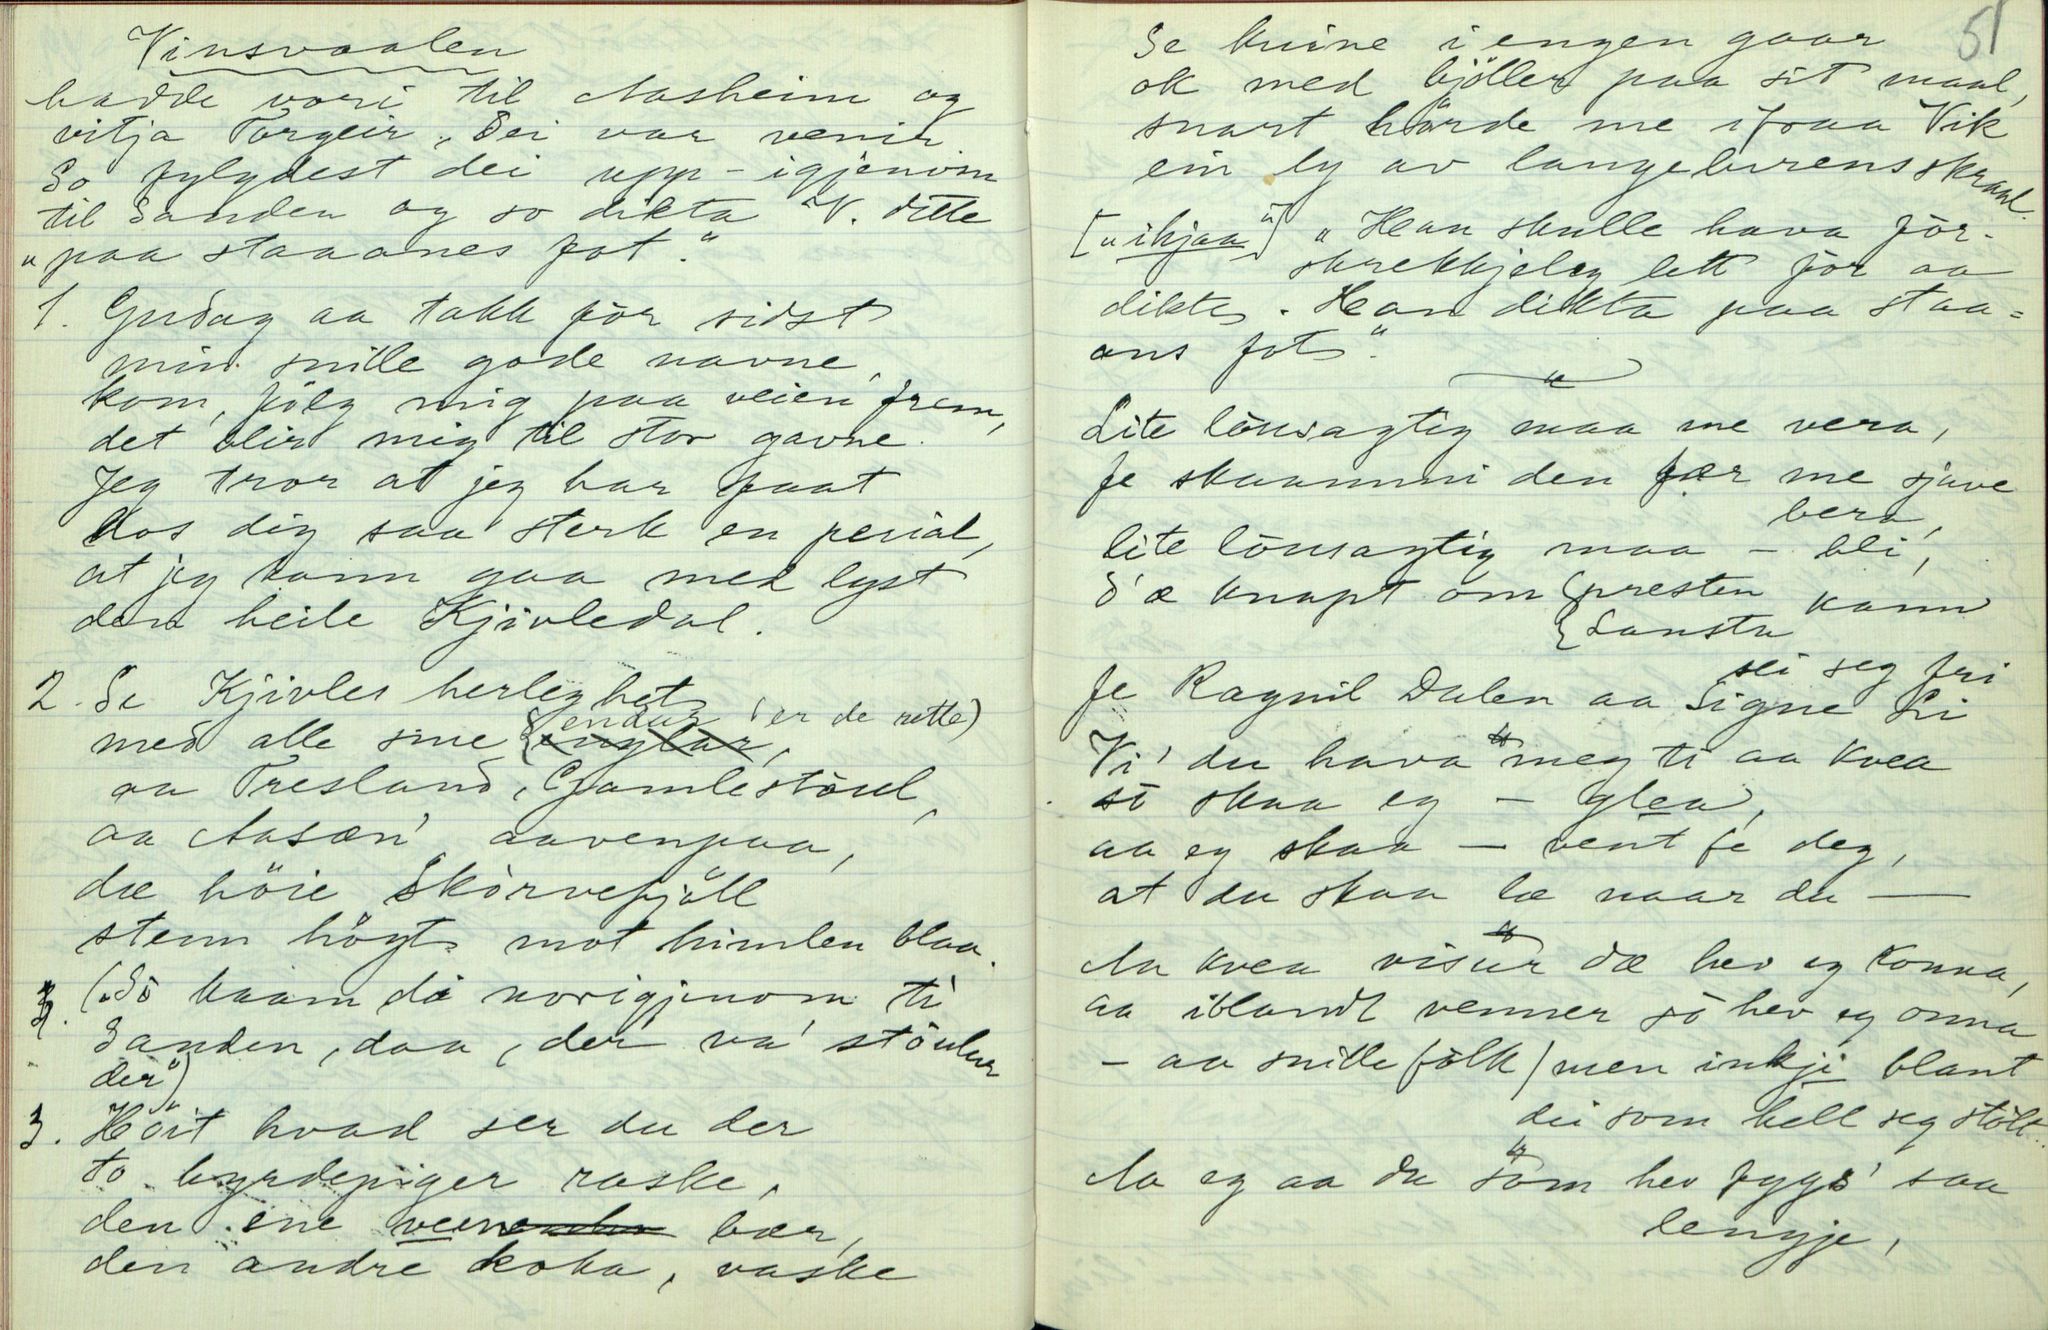 Vinsvaalen
hadde vori til Aasheim og
vitja Torgeir. Dei var venir
So fylgdest dei upp-igjenom
til Sanden og so dikta V. dette
"paa staaanes fot".
1. Gudag aa takk för sidst
min snille gode navne,
kom, fölg mig paa veien frem,
det blir mig til stor gavne.
Jeg tror at jeg har faat
hos dig saa sterk en pesial,
at jeg kann gaa med lyst
den heile Kjivledal.
2. Se Kjivles herleghet
endur (er de rette)
med alle sine englar,
aa Tresland, Gamlestöul,
aa Aasæn' aavenpaa,
dæ höie Skörvefjöll
stenn högt mot himlen blaa.
("So kaam dei norigjenom ti
Sanden, daa, der va' stöular
der")
3. Höit hvad ser du der
to hyrdepiger raske,
den ene veen bær,
den andre koka, vaske
51
Se kuine i engen gaar
ok med bjöller paa sit maal,
snart hörde me ifraa Vik
ein ly av langelurens skraal.
["ikjaa"] "Han skulle hava för-
skrekkjeleg lett för aa
dikte. Han dikta paa staa=
ans fot".
Lite lönsagtig maa me vera,
fe skaammi den fær me sjave
bera,
lite lönsagtig maa - bli,
d'æ knapt om {presten kann
{Lansta
sei seg fri
fe Ragnil Dalen aa Signe Li
Vi' du hava meg ti aa kvea
so skaa eg - glea,
aa eg skaa - vent fe deg,
at du skaa læ naar du —
Aa kvea visur dæ hev eg konna,
aa iblandt venner so hev eg onna
- aa snille fölk / men inkje blant
dei som hell seg stölt..
Aa eg aa du som hev fygs' saa
lengje,